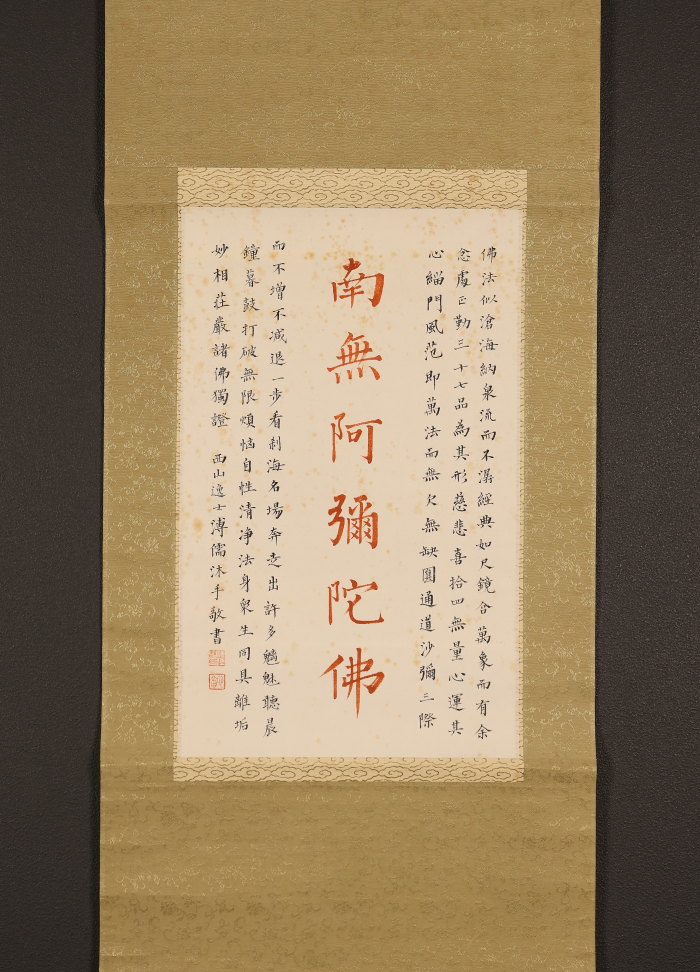 佛法似滄海納衆流而不潺經典如尺鏡含萬象而有余
念處正勤三十七品為其形慈悲喜拾四無量心運其
心緇門風范即萬法而無欠無缺圓通道沙彌三際
南無阿彌陀佛
而不增不减退一步看制海名場奔走出許多魑魅聽晨
鐘暮鼓打破無限煩惱自性清净法身衆生同具離垢
妙相莊嚴諸佛獨證 西山逸士溥儒沐手敬書